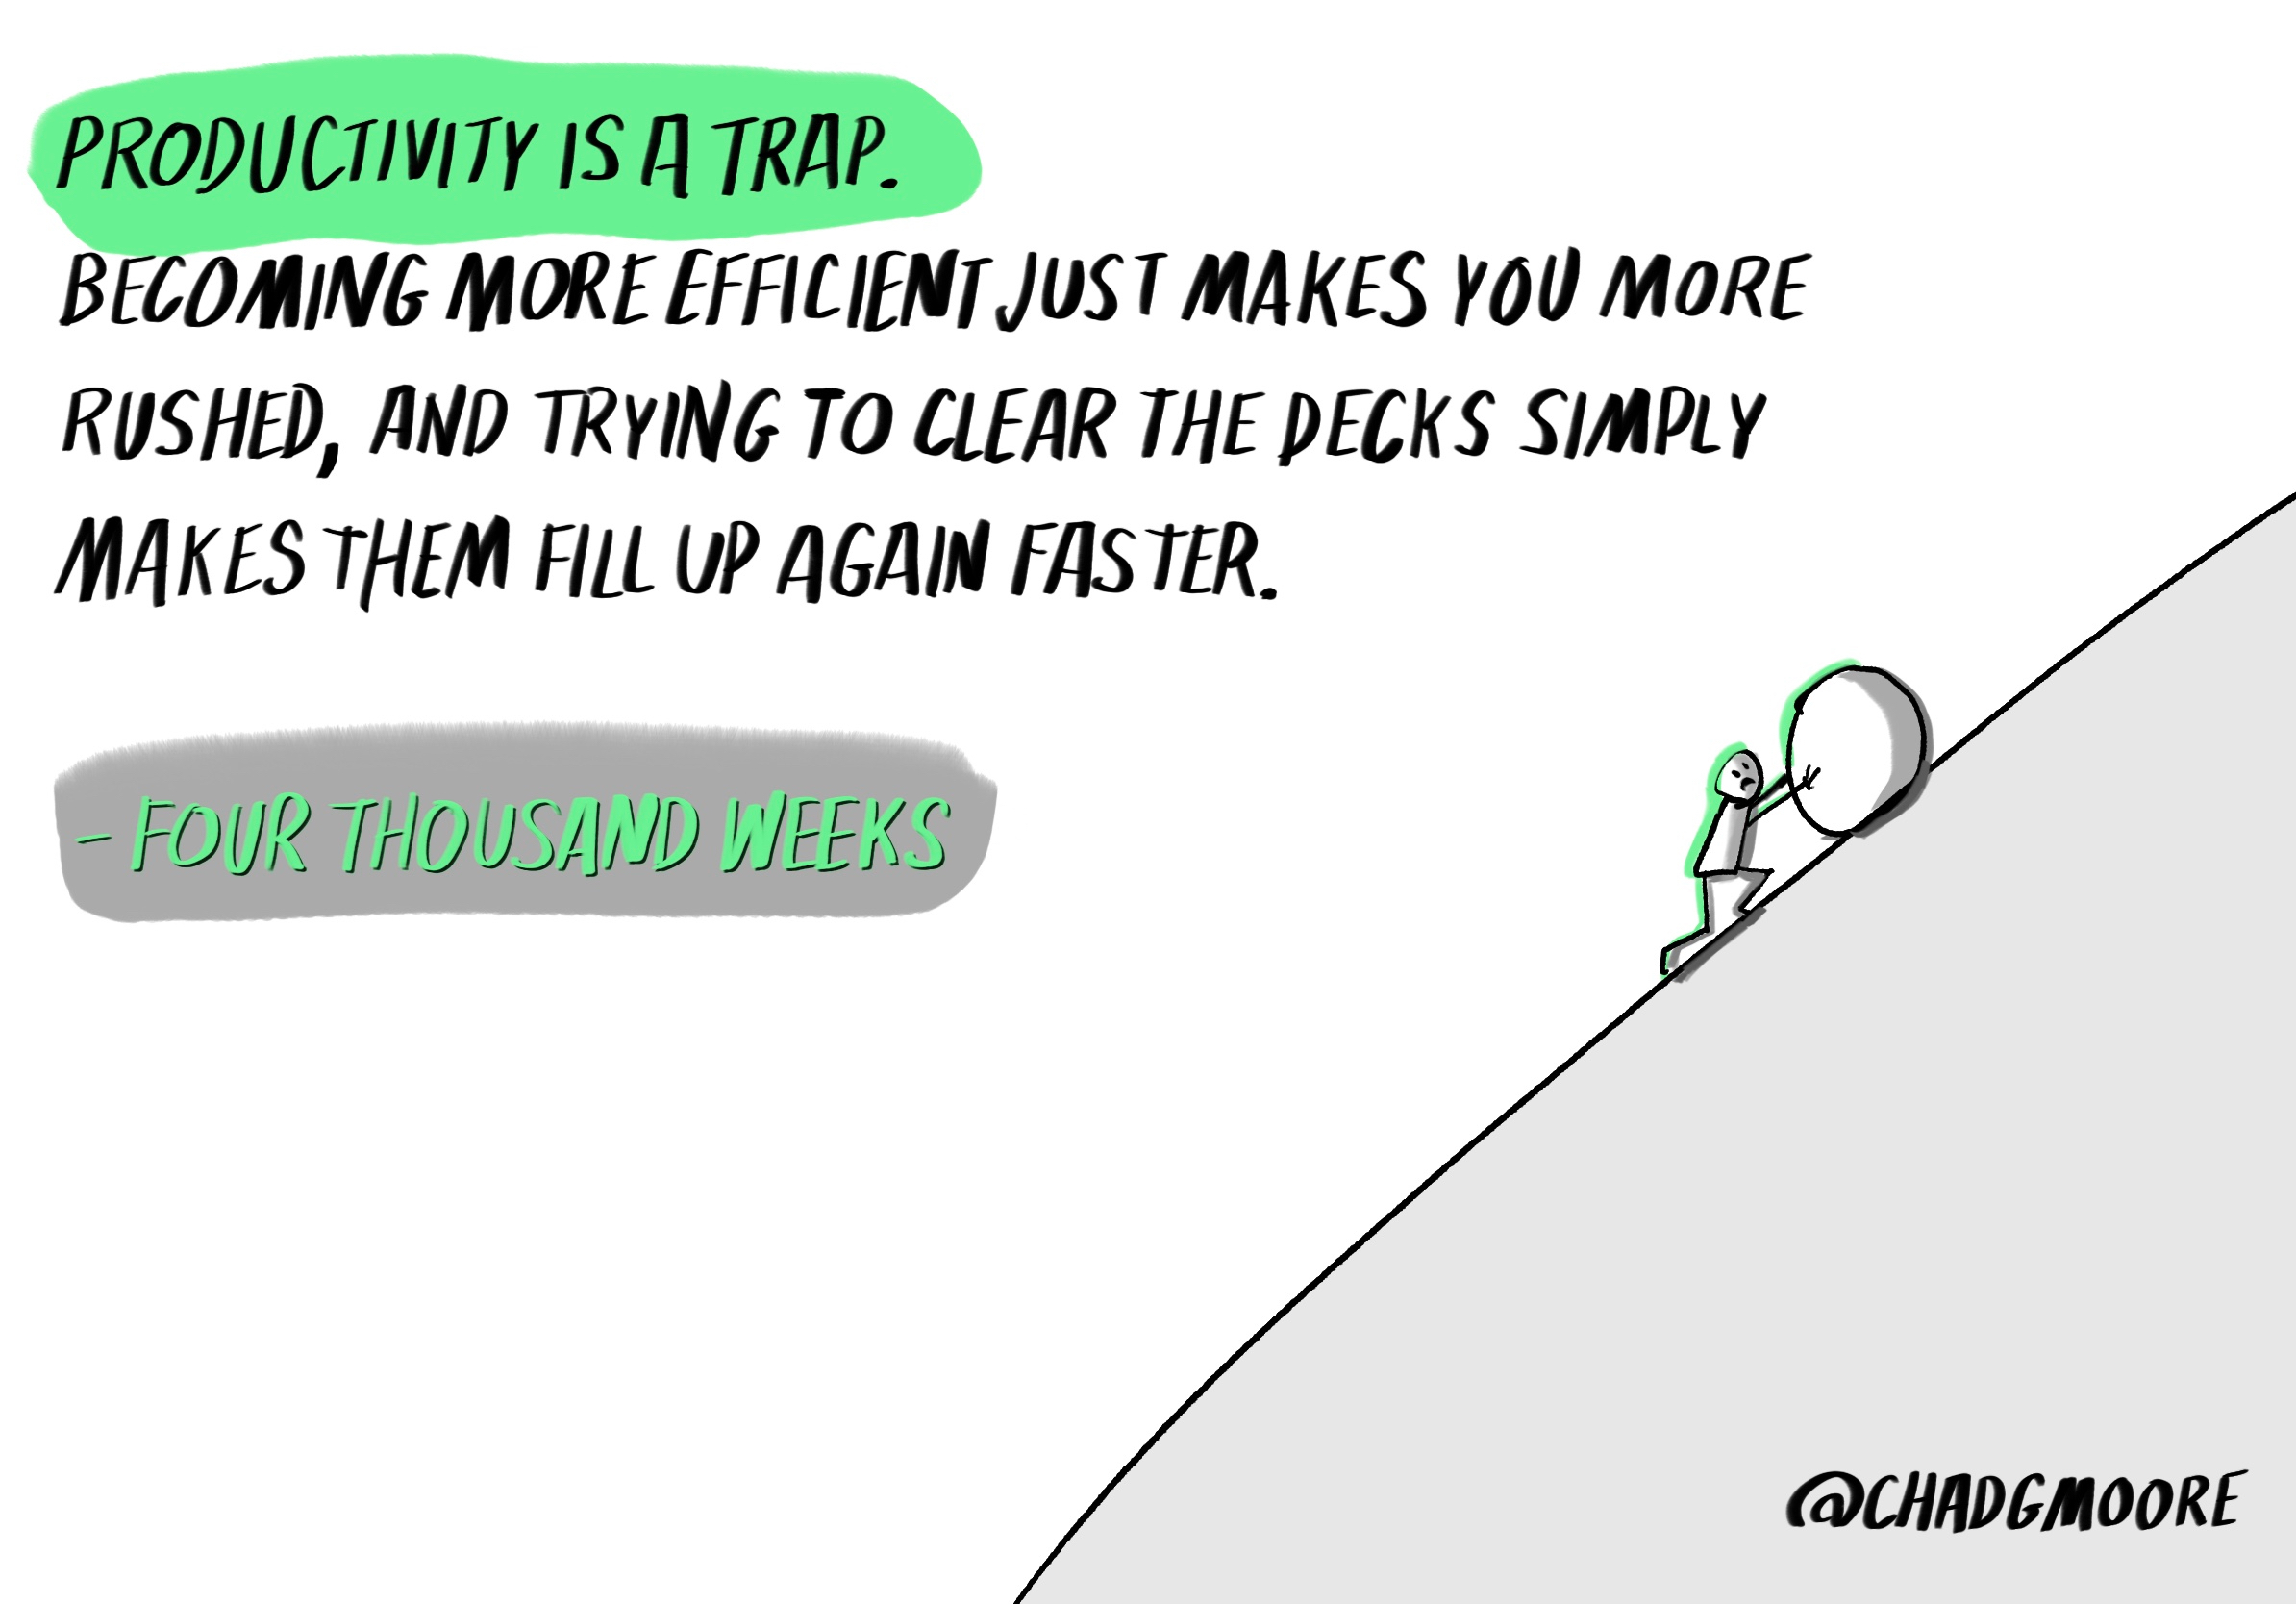 PRODUCTIVITY IS A TRAP.
BECOMING MORE EFFICIENT JUST MAKES YOU MORE
RUSHED, AND TRYING TO CLEAR THE DECKS SIMPLY
MAKES THEM FILL UP AGAIN FASTER.
- FOUR THOUSAND WEEKS
@CHADGMOORE